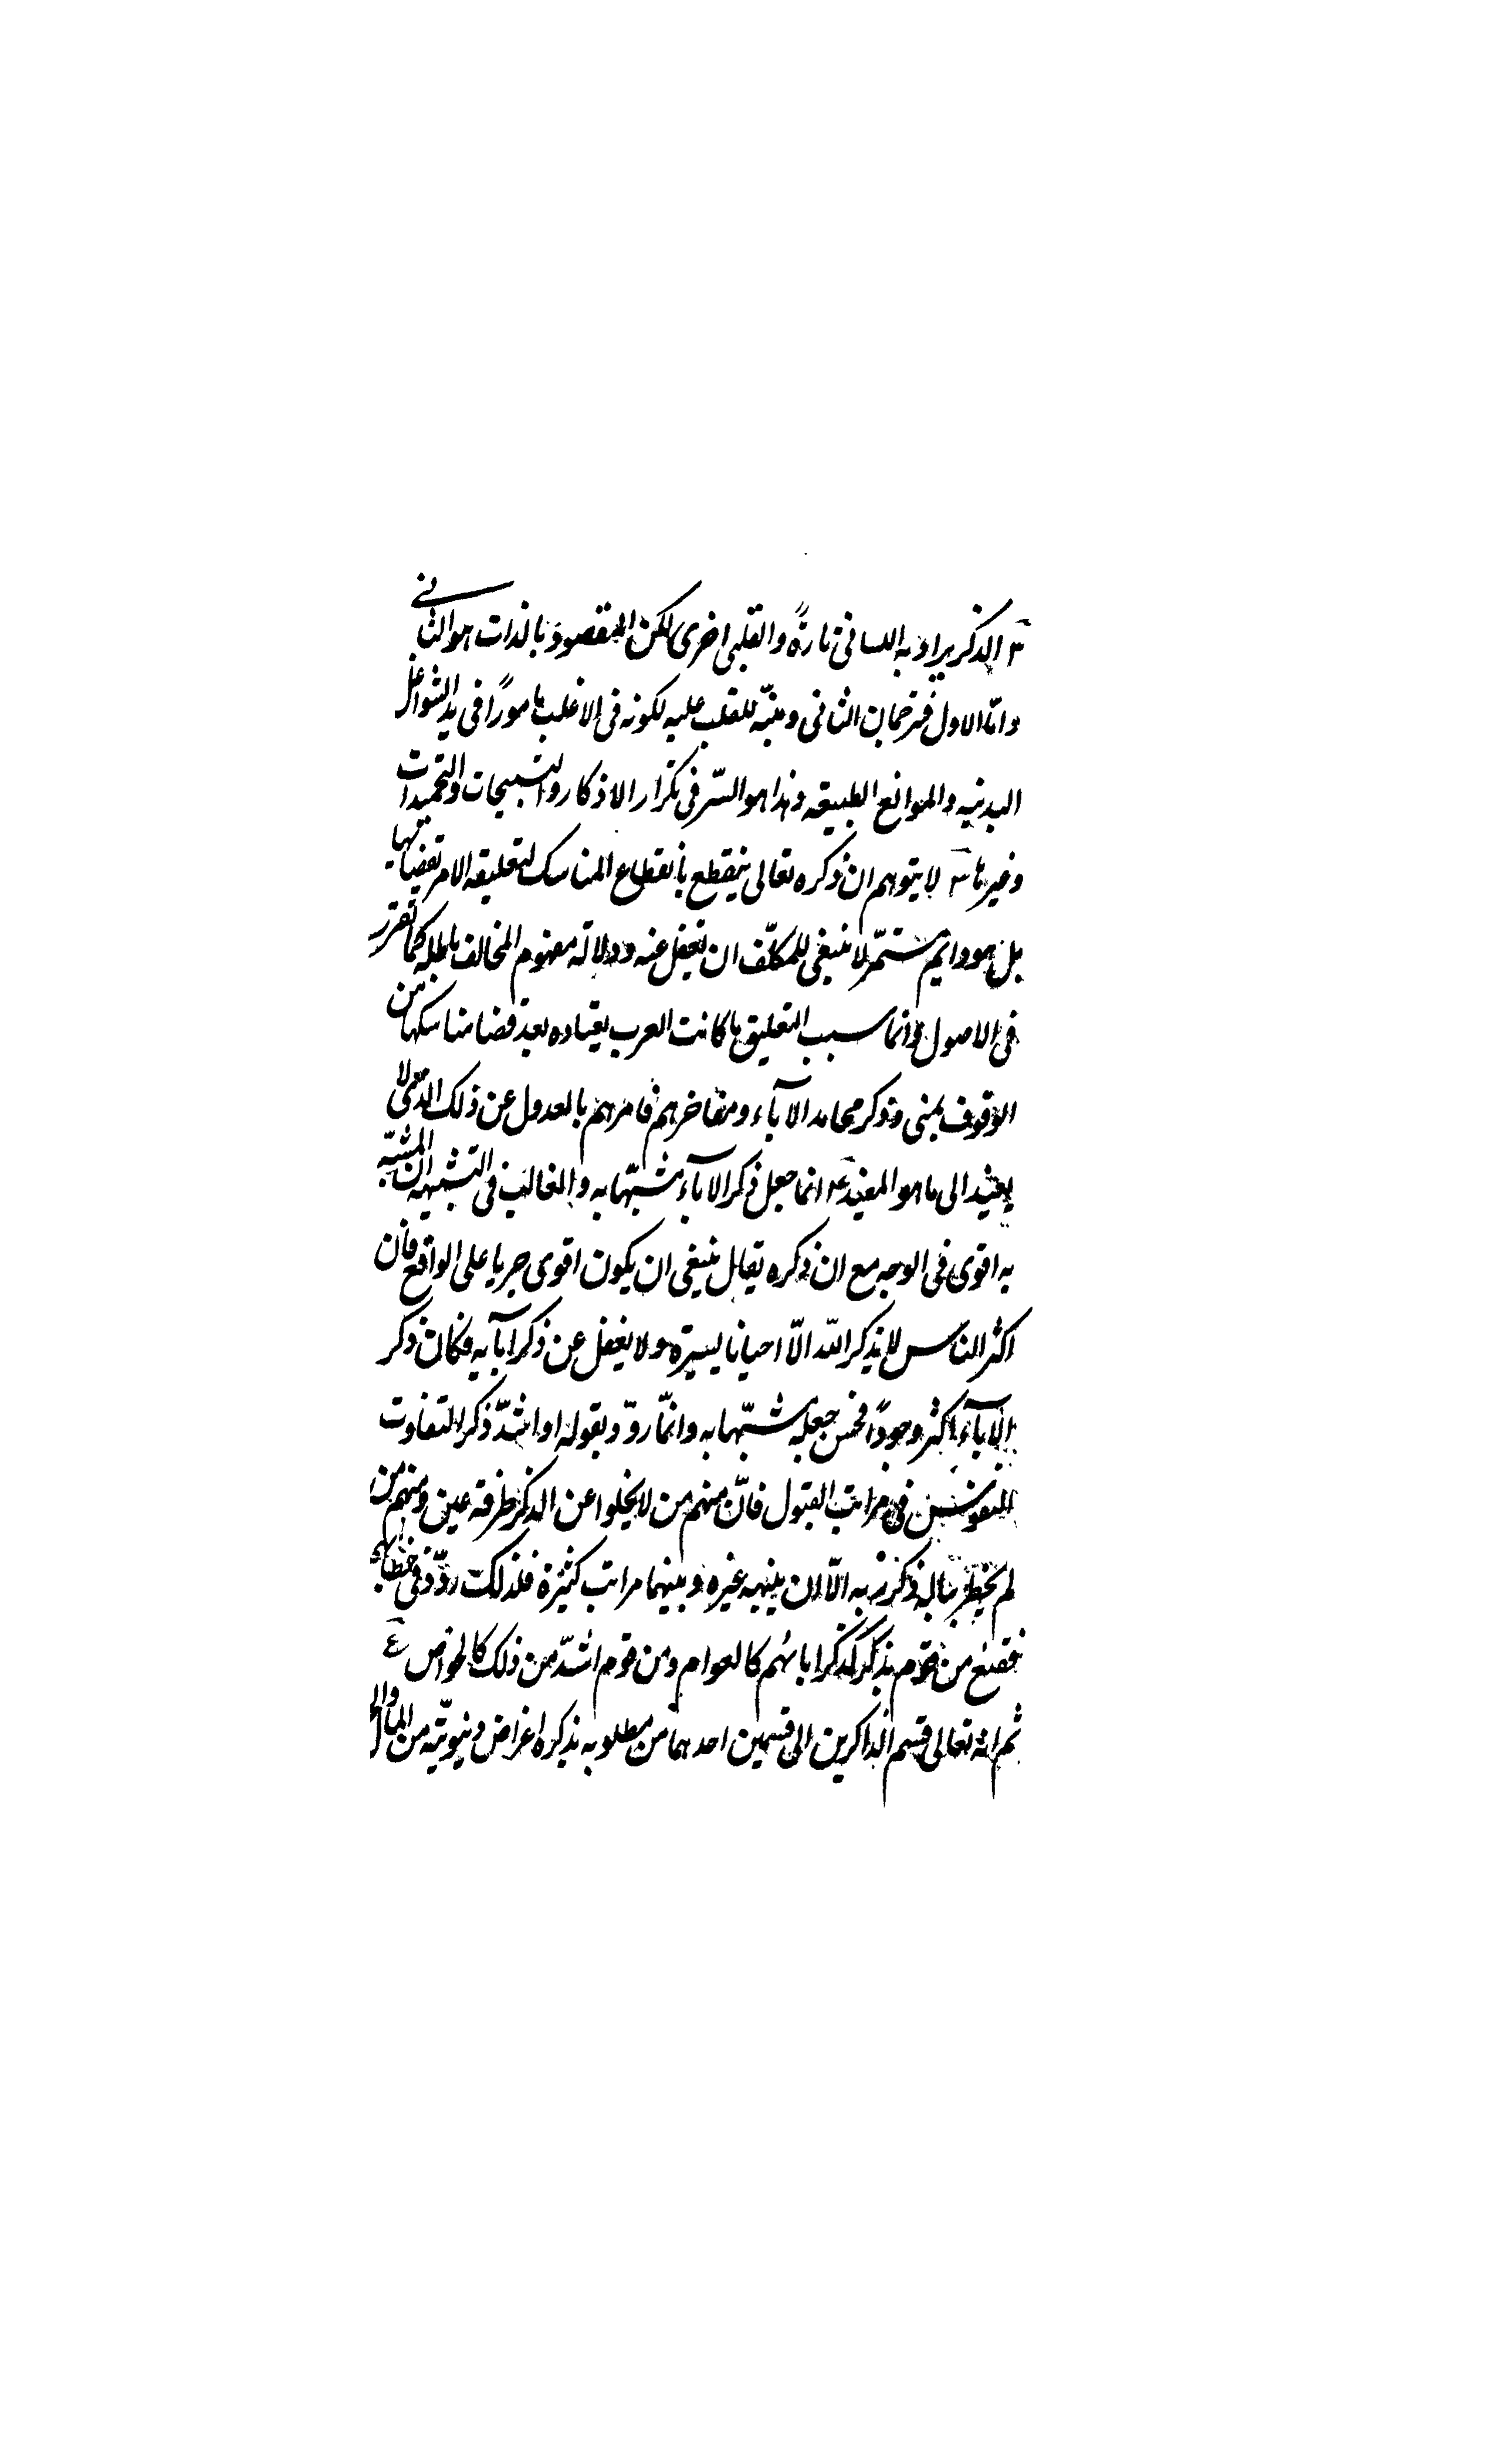 ٢ الذكر يراد به اللساني تارةً والقلبي اخرى لكن المقصود بالذات هو الثاني
وامّا الاول فترجمان الثاني ومنبّه للقلب عليه لكونه في الاغلب ماسورًا في يد الشواغل
البدنيه والموانع الطبيعه وهذا هو السّر في تكرار الاذكار والتسبيحات والتحميدات
وغيرها ٣ لا يتوهم ان ذكره تعالى ينقطع بانقطاع المناسك لتعليقه الامر بقضائها
بل هو دايم مستمّر لا ينبغي للمكلّف ان يغفل عنه ودلالة مفهوم المخالف باطله كما تقرر
في الاصول وانما سبب التعليق ما كانت العرب يعتاده بعد قضا مناسكها من
الوقوف بمنى وذكر محامد الآباء ومفاخرهم فامرهم بالعدول عن ذلك الذي لا
يفيد الى ما هو المفيد ٤ انما جعل ذكر الآباء مشبّها به والغالب في التشبيه ان المشبّه
به اقوى في الوجه مع ان ذكره تعالى ينبغي ان يكون اقوى جريا على الواقع فان
اكثر الناس لا يذكر الله الّا احيانا يسيرة ولا يغفل عن ذكر ابآيه فكان ذكر
الآباء اكثر وجودًا فحسن جعله مشبّها به وانّما ردّد بقوله او اشدّ ذكرا لتفاوت
النفوس في مراتب القبول فانّ منهم من لا يخلوا عن الذكر طرفة عين ومنهم من
لم يخطر بباله ذكر ربه الّا ان ينبهه غيره وبينهما مراتب كثيرة فلذلك ردّد في خطابهم
فقنع من قوم بذكر كذكر ابائهم كالعوام ومن قوم اشدّ من ذلك كالخواص ع
ثم انه تعالى قسم الذاكرين الى قسمين احدهما من مطلوبه بذكره اغراض دنيويّة من المال